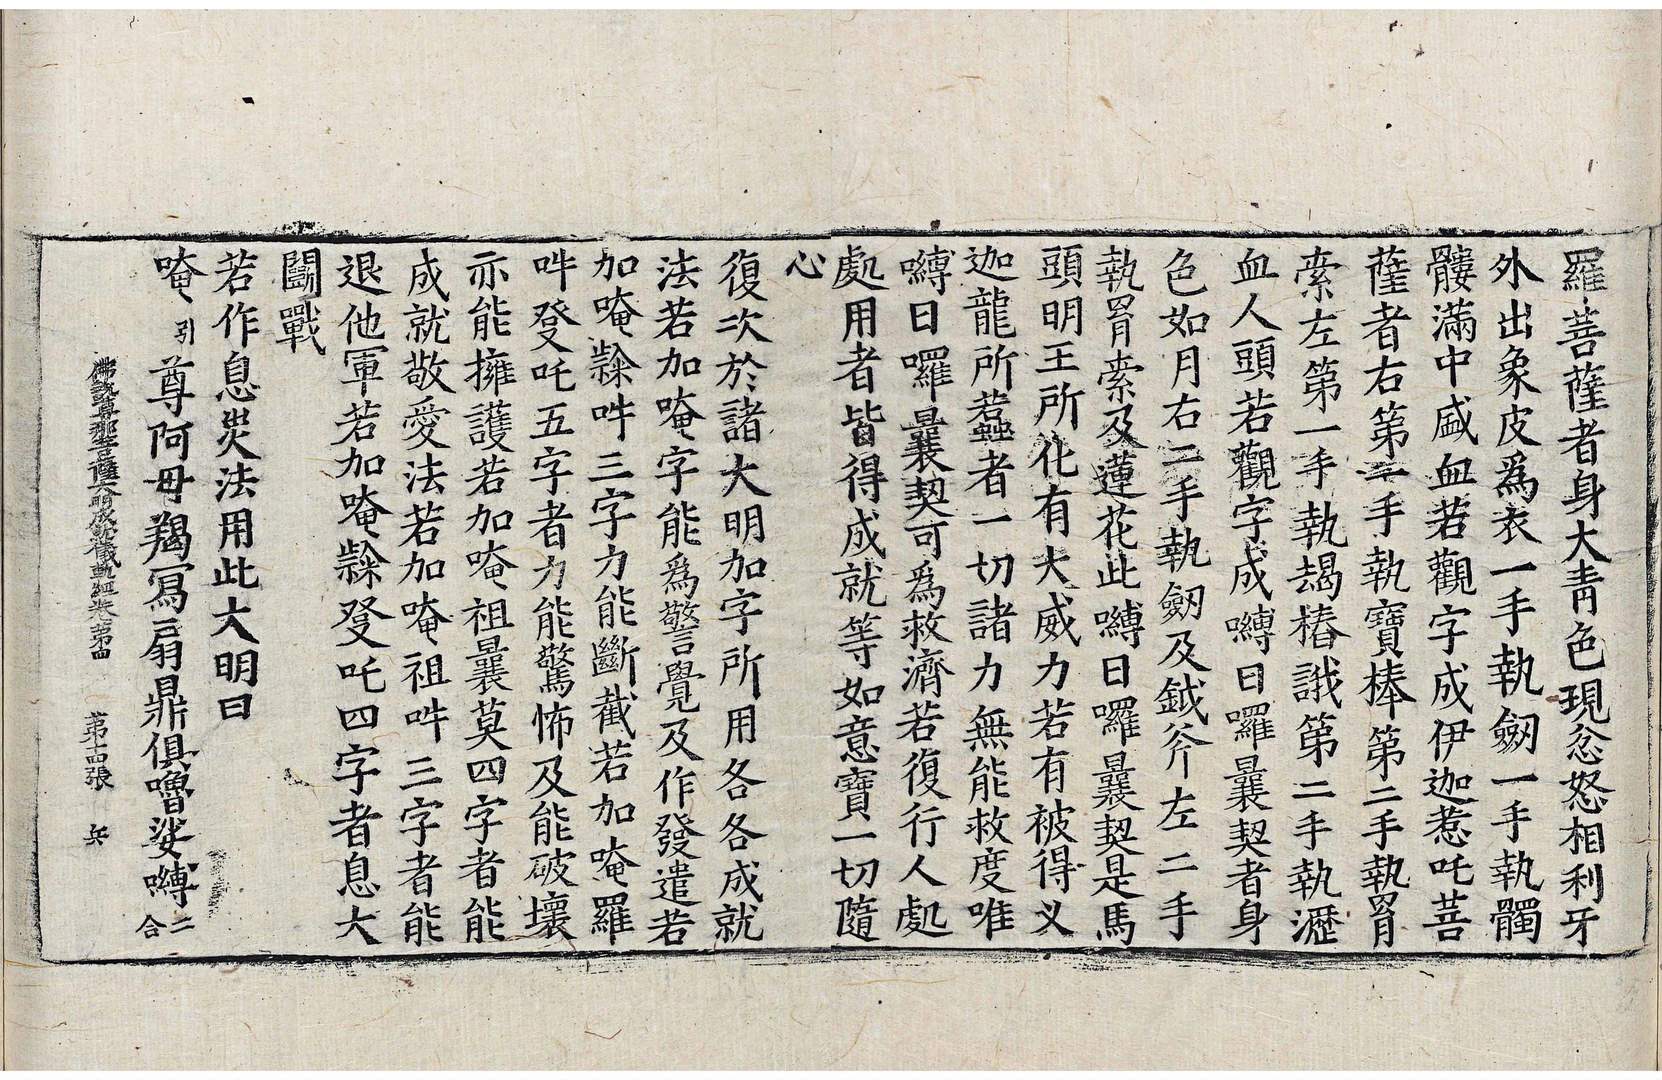 羅菩薩者身大青色現忿怒相利牙
外出象皮爲衣一手執劔一手執髑
髏滿中盛血若觀字成伊迦惹吒菩
薩者右第一手執寶棒第二手執罥
索左第一手執朅樁誐第二手執瀝
血人頭若觀字成嚩日囉曩契者身
色如月右二手執劔及鉞斧左二手
執罥索及蓮花此嚩日囉曩契是馬
頭明王所化有大威力若有被得义
迦龍所蠚者一切諸力無能救度唯
嚩日囉曩契可爲救濟若復行人處
處用者皆得成就等如意寶一切隨
心
復次於諸大明加字所用各各成就
法若加唵字能爲警覺及作發遣若
加唵𪐴吽三字力能斷截若加唵羅
吽發吒五字者力能驚怖及能破壞
亦能擁護若加唵祖曩莫四字者能
成就敬愛法若加唵祖吽三字者能
退他軍若加唵𪐴發吒四字者息大
鬬戰
若作息災法用此大明曰
唵引尊阿毋羯寫扇鼎俱嚕娑嚩二合
佛說尊那菩薩大明成就儀軌經卷第四 第十四張 兵